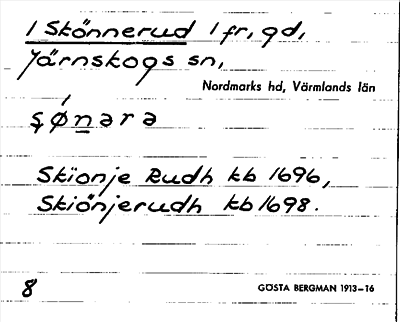 1 Skönnerud 1 fr, gd,
Järnskogs sn,
Nordmarks hd, Värmlands län
şǿn̲ərə
Skionje Rudh kb 1696,
Skiönjerudh kb 1698.
8
GÖSTA BERGMAN 1913–16